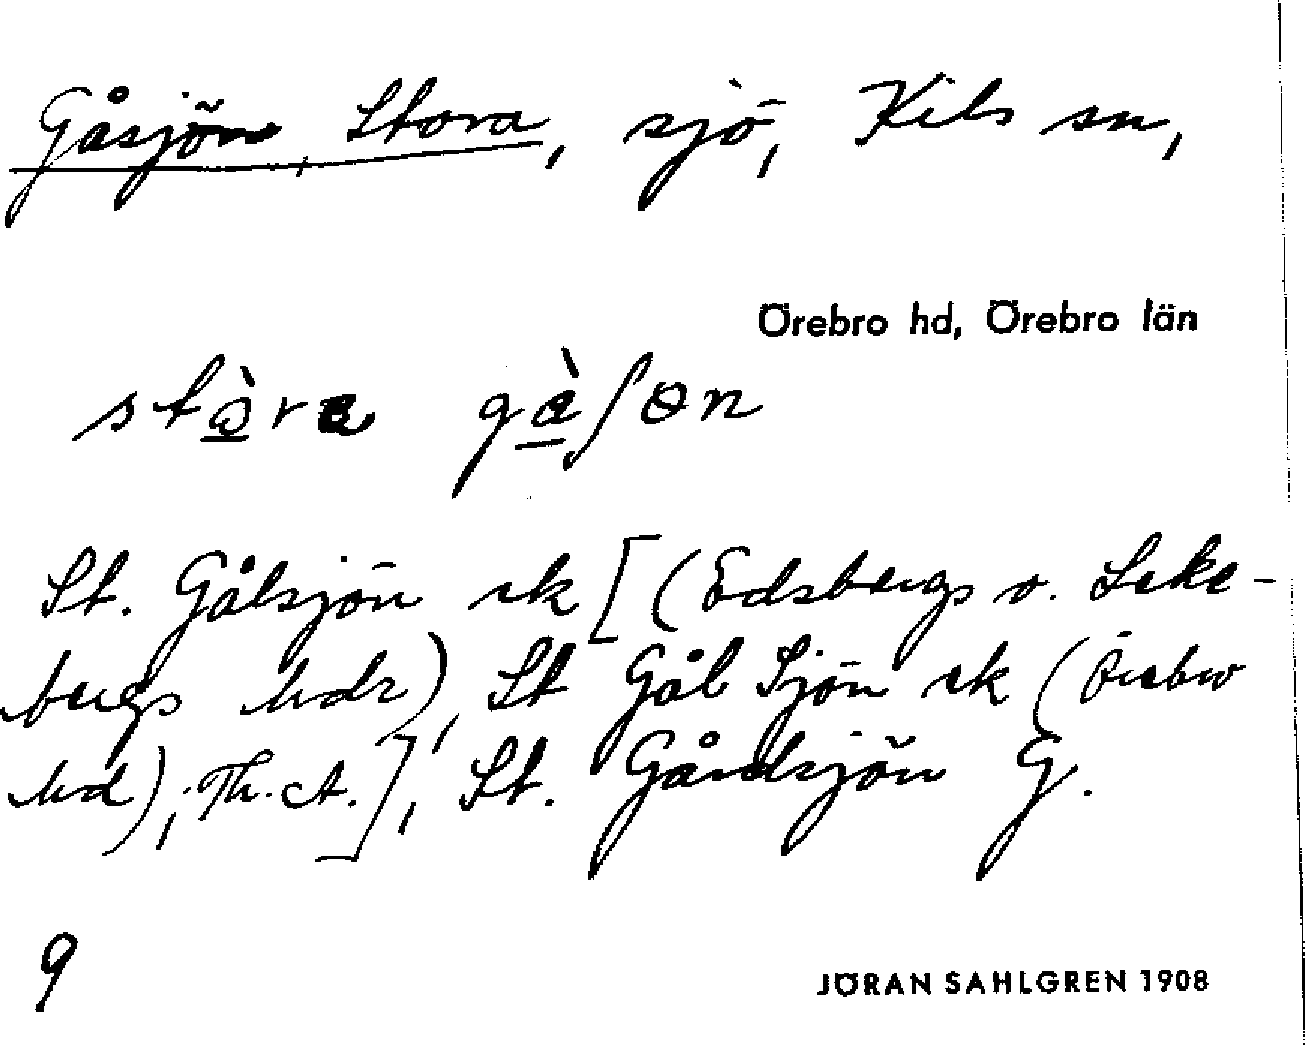 Gåsjön, Stora, sjö, Kils sn,
Örebro hd, Örebro län
St. Gålsjön rk [(Edsbergs o. Leke-
bergs hdr), St Gål Sjön rk (Örebro
hd), Th. A.], St. Gårdsjön G.
9
JÖRAN SAHLGREN 1908